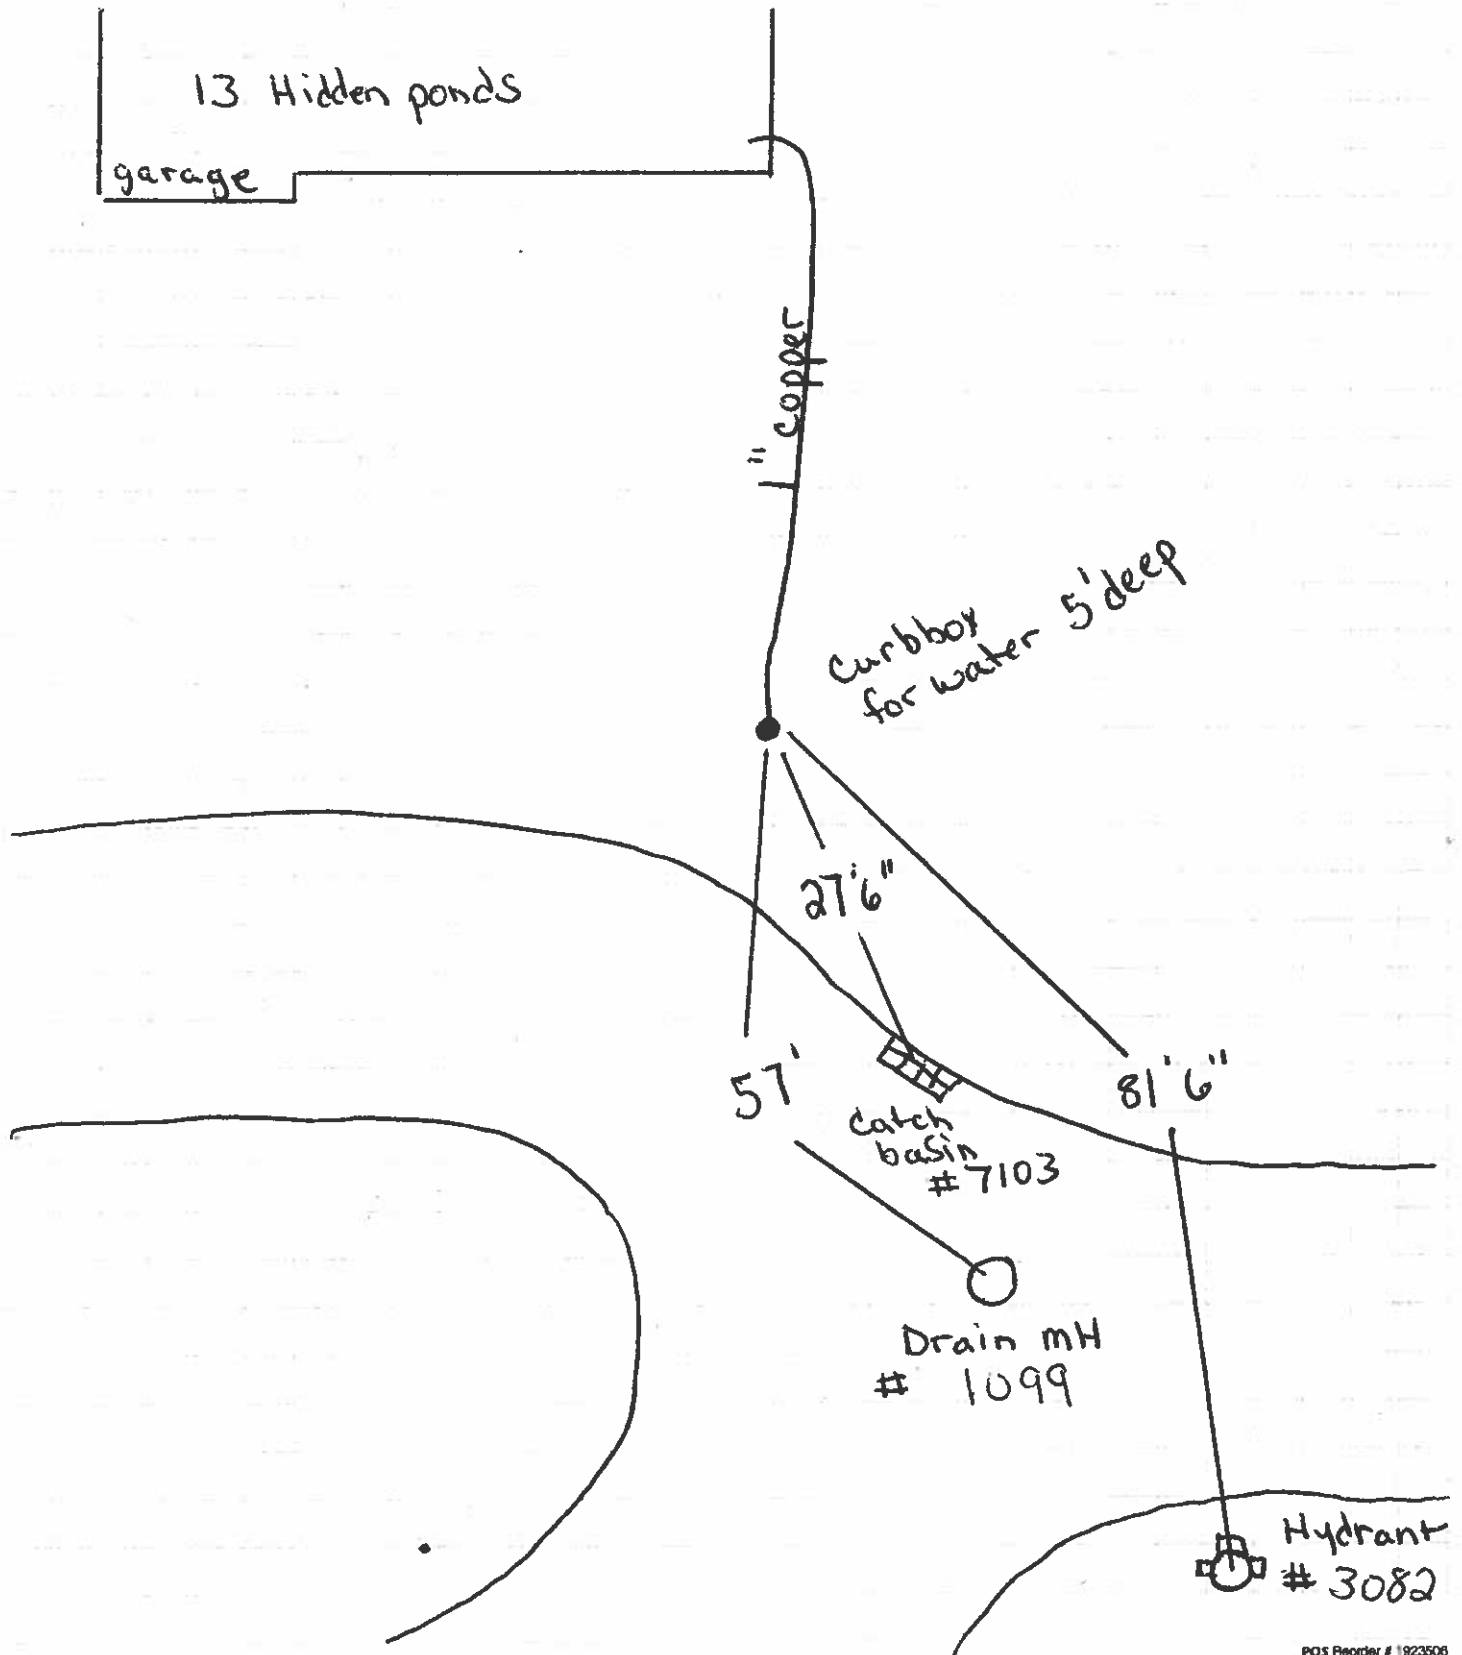 13 Hidden ponds
garage
1" copper
curbbox
for water 5' deep
27'6"
57'
81'6"
Catch
basin
# 7103
Drain MH
# 1099
Hydrant
# 3082
POS Reorder # 1923506